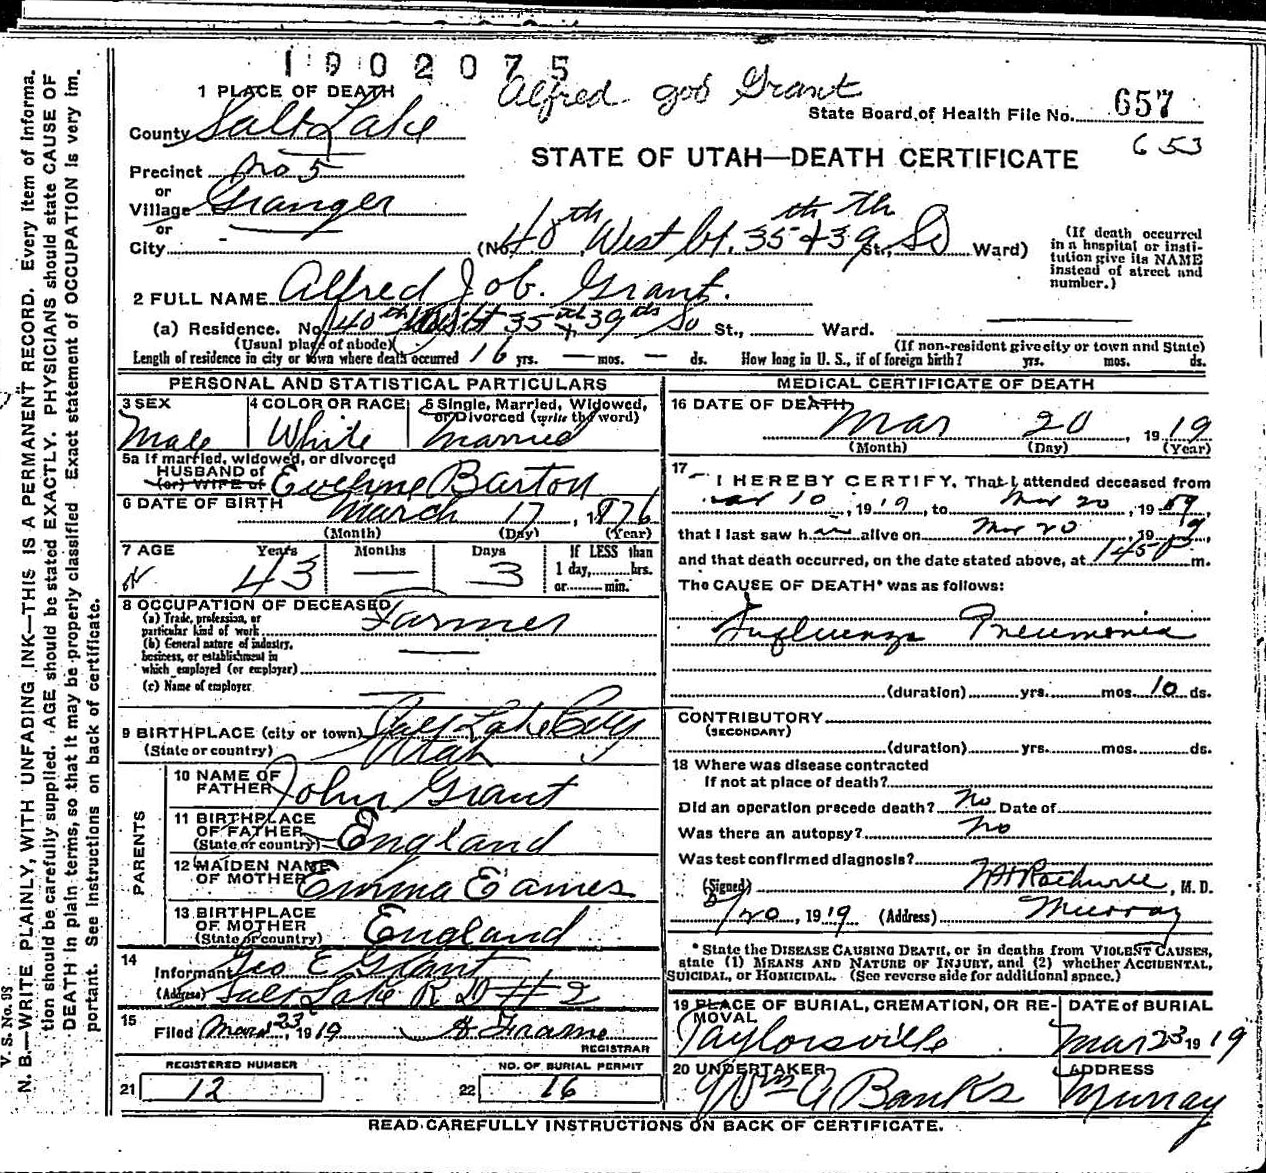 1902075
Alfred Job Grant
State Board of Health File No. 657
653
1 PLACE OF DEATH
County Salt Lake
STATE OF UTAH—DEATH CERTIFICATE
Precinct No 5
or
Village Granger
or
City
(No. 40th West bt. 35th + 39th St., So Ward)
(If death occurred in a hospital or institution give its NAME instead of street and number.)
2 FULL NAME Alfred Job. Grant.
(a) Residence. No. 40th West bt 35th + 39th So St., Ward.
(Usual place of abode) (If non-resident give city or town and State)
Length of residence in city or town where death occurred 16 yrs. — mos. — ds. How long in U. S., if of foreign birth? yrs. mos. ds.
PERSONAL AND STATISTICAL PARTICULARS
3 SEX Male
4 COLOR OR RACE White
5 Single, Married, Widowed, or Divorced (write the word) Married
5a If married, widowed, or divorced
HUSBAND of
(or) WIFE of Eveline Barton
6 DATE OF BIRTH March 17, 1876
(Month) (Day) (Year)
7 AGE Years 43 Months — Days 3 If LESS than 1 day,........hrs. or........min.
8 OCCUPATION OF DECEASED
(a) Trade, profession, or particular kind of work Farmer
(b) General nature of industry, business, or establishment in which employed (or employer) —
(c) Name of employer —
9 BIRTHPLACE (city or town) Salt Lake City
(State or country) Utah
PARENTS
10 NAME OF FATHER John Grant
11 BIRTHPLACE OF FATHER (State or country) England
12 MAIDEN NAME OF MOTHER Emma Eames
13 BIRTHPLACE OF MOTHER (State or country) England
14
Informant Geo E Grant
(Address) Salt Lake R D # 2
15
Filed Mar 23, 1919
REGISTRAR
REGISTERED NUMBER
21 12
NO. OF BURIAL PERMIT
22 16
MEDICAL CERTIFICATE OF DEATH
16 DATE OF DEATH Mar 20, 1919
(Month) (Day) (Year)
17 I HEREBY CERTIFY, That I attended deceased from
10, 1919, to Mar 20, 1919,
that I last saw h alive on Mar 20, 1919,
and that death occurred, on the date stated above, at 145 P m.
The CAUSE OF DEATH* was as follows:
Influenza Pneumonia
(duration) yrs. mos. 10 ds.
CONTRIBUTORY
(SECONDARY)
(duration) yrs. mos. ds.
18 Where was disease contracted
If not at place of death?
Did an operation precede death? No Date of
Was there an autopsy? No
Was test confirmed diagnosis?
(Signed) Rockwell, M. D.
20, 1919 (Address) Murray
* State the DISEASE CAUSING DEATH, or in deaths from VIOLENT CAUSES,
state (1) MEANS AND NATURE OF INJURY, and (2) whether ACCIDENTAL,
SUICIDAL, or HOMICIDAL. (See reverse side for additional space.)
19 PLACE OF BURIAL, CREMATION, OR REMOVAL Taylorsville
DATE of BURIAL Mar 23 1919
20 UNDERTAKER Wm A Banks
ADDRESS Murray
READ CAREFULLY INSTRUCTIONS ON BACK OF CERTIFICATE.
V. S. No. 98
N. B.—WRITE PLAINLY, WITH UNFADING INK—THIS IS A PERMANENT RECORD. Every item of information should be carefully supplied. AGE should be stated EXACTLY. PHYSICIANS should state CAUSE OF DEATH in plain terms, so that it may be properly classified Exact statement of OCCUPATION is very important. See instructions on back of certificate.